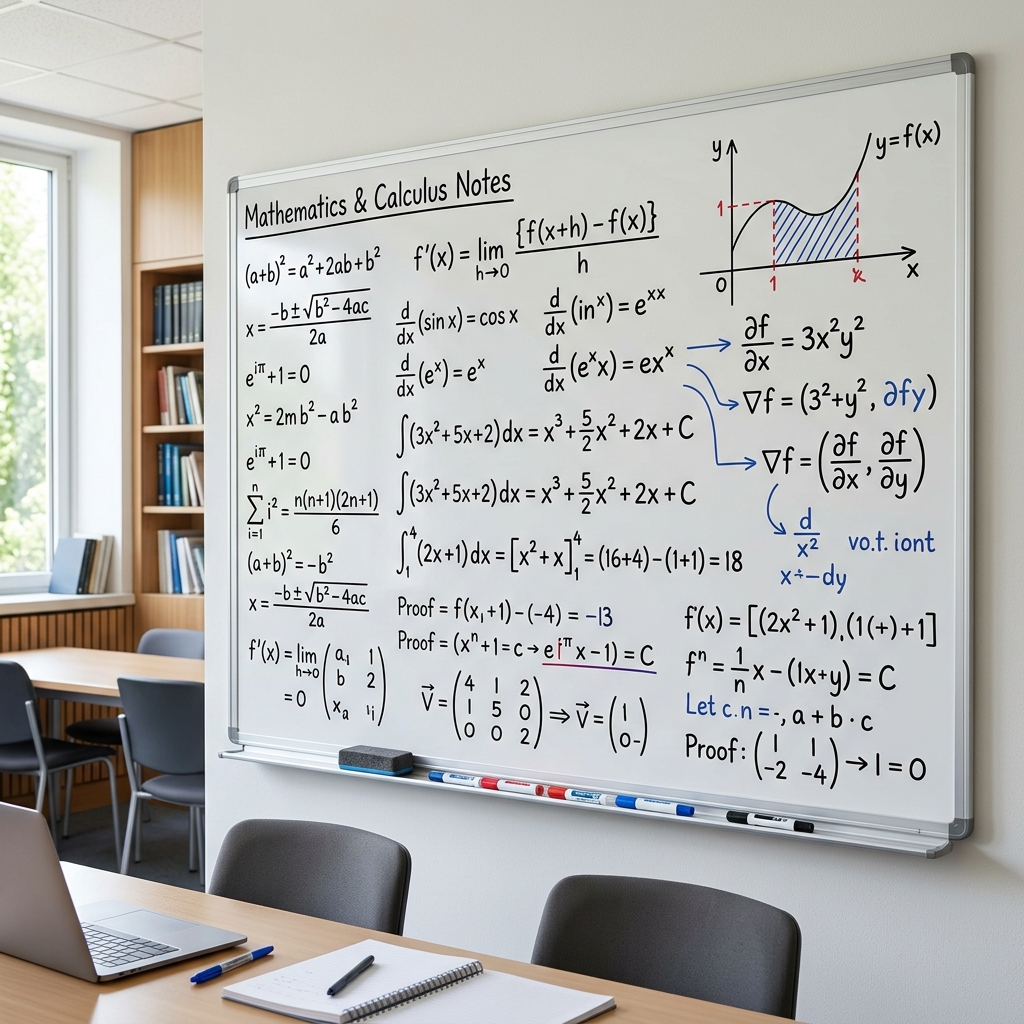 Mathematics & Calculus Notes
(a+b)² = a² + 2ab + b²
x = (-b ± √(b² - 4ac)) / 2a
e^(iπ) + 1 = 0
x² = 2m b² - a b²
e^(iπ) + 1 = 0
∑_(i=1)^n i² = n(n+1)(2n+1) / 6
(a+b)² = -b²
x = (-b ± √(b² - 4ac)) / 2a
f'(x) = lim_(h→0) (a₁ 1
b 2
x_a ı_i)
= 0
f'(x) = lim_(h→0) {f(x+h) - f(x)} / h
d/dx (sin x) = cos x
d/dx (in^x) = e^(xx)
d/dx (e^x) = e^x
d/dx (e^x x) = ex^x
∫(3x² + 5x + 2) dx = x³ + 5/2 x² + 2x + C
∫(3x² + 5x + 2) dx = x³ + 5/2 x² + 2x + C
∫₁⁴ (2x+1) dx = [x² + x]₁⁴ = (16+4) - (1+1) = 18
Proof = f(x₁+1) - (-4) = -13
Proof = (x^n + 1 = c → e i^π x - 1) = C
V⃗ = (4 1 2
1 5 0
0 0 2) ⇒ V⃗ = (1
0-)
y
y = f(x)
1
0
1
x
x
→ ∂f/∂x = 3x²y²
∇f = (3² + y², ∂fy)
∇f = (∂f/∂x, ∂f/∂y)
d/x² vo.t. iont
x ÷ - dy
f'(x) = [(2x² + 1), (1(+) + 1]
f^n = 1/n x - (1x + y) = C
Let c.n = -, a + b · c
Proof: (1 1
-2 -4) → 1 = 0